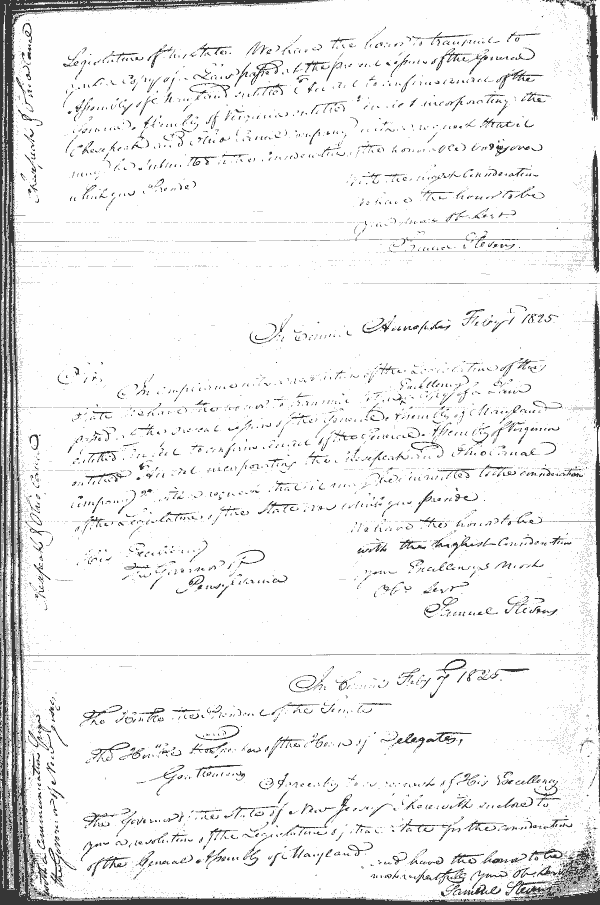 Legislature of this State. We have the honor to transmit to
you a Copy of a Law passed at the present Session of the General
Assembly of Maryland entitled "An act to confirm an act of the
General Assembly of Virginia entitled "an act incorporating the
Chesapeak and Ohio Canal Company" with a request that it
may be submitted to the Consideration of the honorable body over
which you Preside
With the highest Consideration
We have the honor to be
your mo. Ob. Servt.
Samuel Stevens.
Chesapeak & Ohio Canal
In Council Annapolis Feby 1825
Sir,
In compliance with a resolution of the Legislature of this
State We have the honor to transmit to your Excellency a Copy of a Law
passed at the present Session of the General Assembly of Maryland
entitled "An act to confirm an act of the General Assembly of Virginia
entitled "An act incorporating the Chesapeak and Ohio Canal
Company" with a request that it may be submitted to the consideration
of the Legislature of the State over which you preside.
We have the honor to be
with the highest Consideration
your Excellencys Most
Obt. Servt.
Samuel Stevens
His Excellency
The Governor of
Pensylvania
Chesapeak & Ohio Canal
In Council Feby 7 1825.
The Honble. the President of the Senate
and
The Honble. the Speaker of the House of Delegates,
Gentlemen,
Agreeably to a request of His Excellency
the Governor of the State of New Jersey I herewith enclose to
you a resolution of the Legislature of that State for the consideration
of the General Assembly of Maryland
and have the honor to be
most respectfully your Ob. Servt.
Samuel Stevens
with a Communication from
the Governor of New Jersey